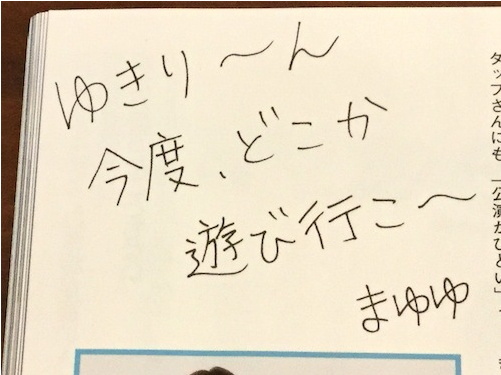 ゆきり〜ん
今度、どこか
遊び行こ〜
まゆゆ
タップさんにも、「公演がひどい」